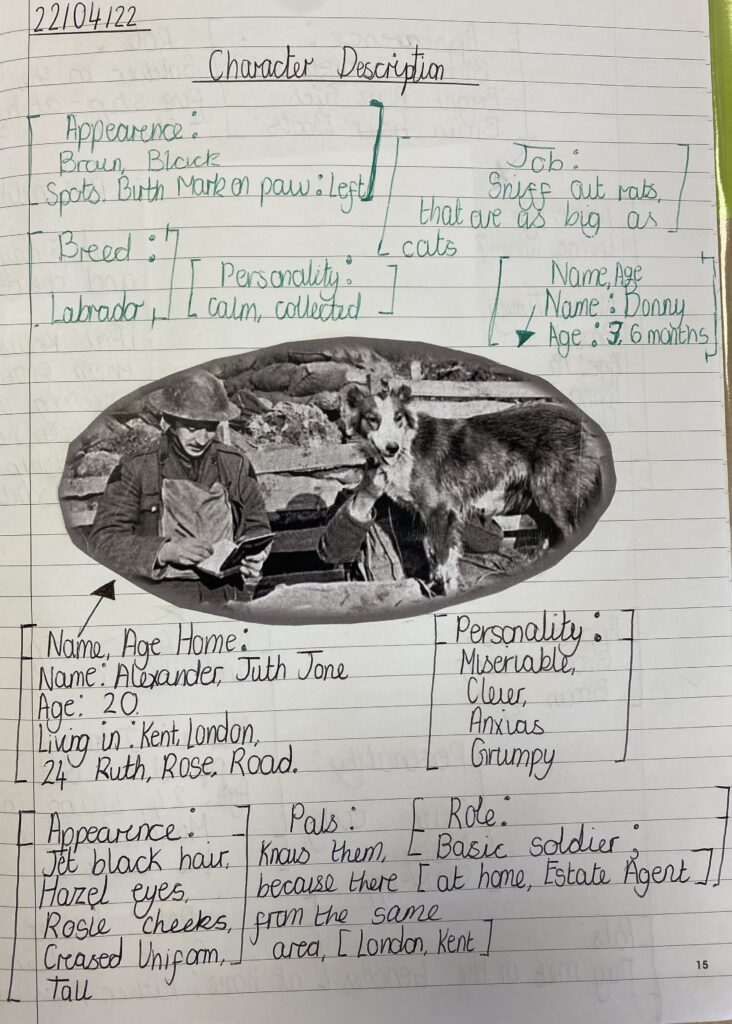 22/04/22
Character Description
Appearence:
Braun, Black
Spots. Birth Mark on paw: Left
Job:
Sniff out rats,
that are as big as
cats
Breed:
Labrador,
Personality:
Calm, collected
Name, Age
Name: Donny
Age: 3, 6 months
Name, Age Home:
Name: Alexander, Juth Jone
Age: 20.
Living in: Kent, London,
24 Ruth, Rose, Road.
Personality:
Miseriable,
Clever,
Anxias
Grumpy
Appearence:
Jet black hair,
Hazel eyes,
Rosie cheeks,
Creased Uniform,
Tall
Pals:
Knows them,
because there
from the same
area, [London, Kent]
Role:
Basic soldier;
[at home, Estate Agent]
15